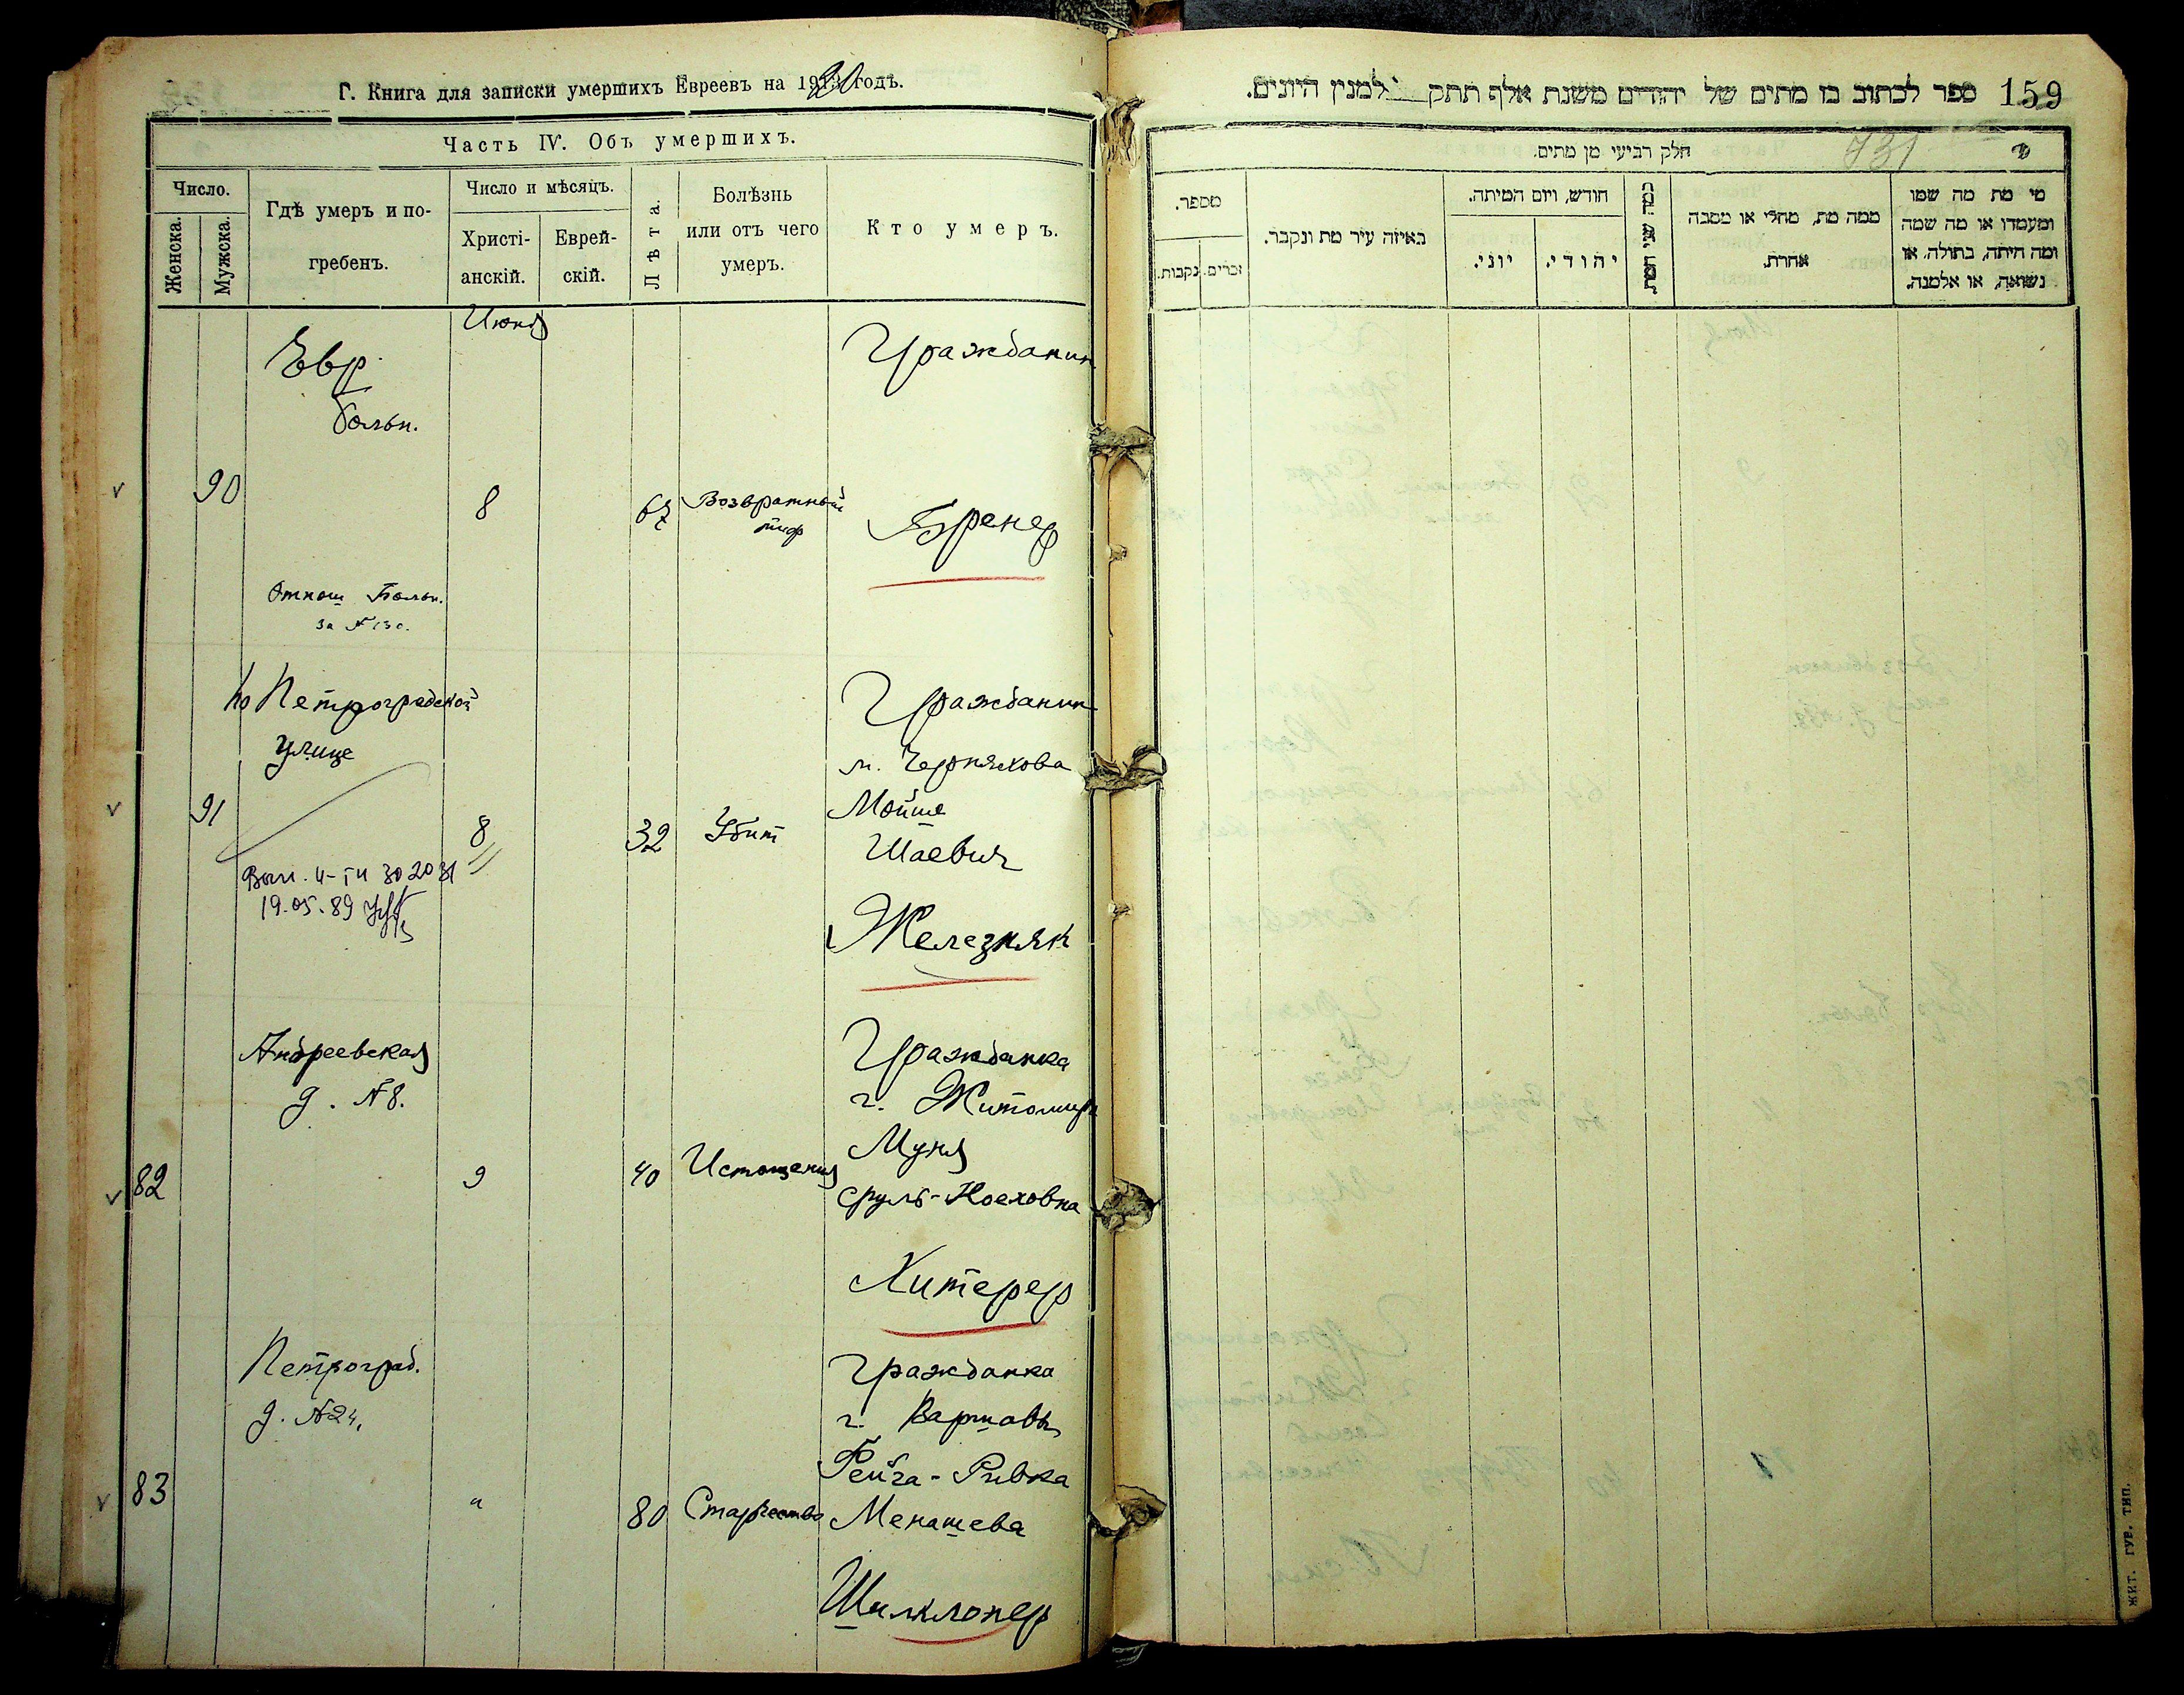 Г. Книга для записки умершихъ Евреевъ на 1920 годъ.
Часть IV. Объ умершихъ.
Число.
Женска.
Мужска.
Гдѣ умеръ и по-
гребенъ.
Число и мѣсяцъ.
Христі-
анскій.
Еврей-
скій.
Лѣта.
Болѣзнь
или отъ чего
умеръ.
Кто умеръ.
Июня
Евр.
больн.
Гражданин
90
8
67
Возвратный
тиф
Бренер
Отнош Больн.
за №130.
по Петроградской
улице
Гражданин
м. Черняхова
91
8
32
Убит
Мойше
Шаевич
Железняк
19.05.89
Андреевская
д. №8.
Гражданка
г. Житомира
82
9
40
Истощения
Муня
Сруль-Ноеховна
Хитерер
Петроград.
д. №24.
Гражданка
г. Варшавы
83
"
80
Старчество
Фейга-Ривка
Менашева
Шиклопер
159
ספר לכתוב בו מתים של יהודים משנת אלף תתק למנין היונים.
731
חלק רביעי מן מתים.
מספר.
נקבות.
זכרים.
באיזה עיר מת ונקבר.
חודש, ויום המיתה.
יוני.
יהודי.
כמה שני המת
ממה מת, מחלי או מסבה
אחרת.
מי מת מה שמו
ומעמדו או מה שמה
ומה היתה, בתולה, או
נשואה, או אלמנה.
ЖИТ. ГУБ. ТИП.